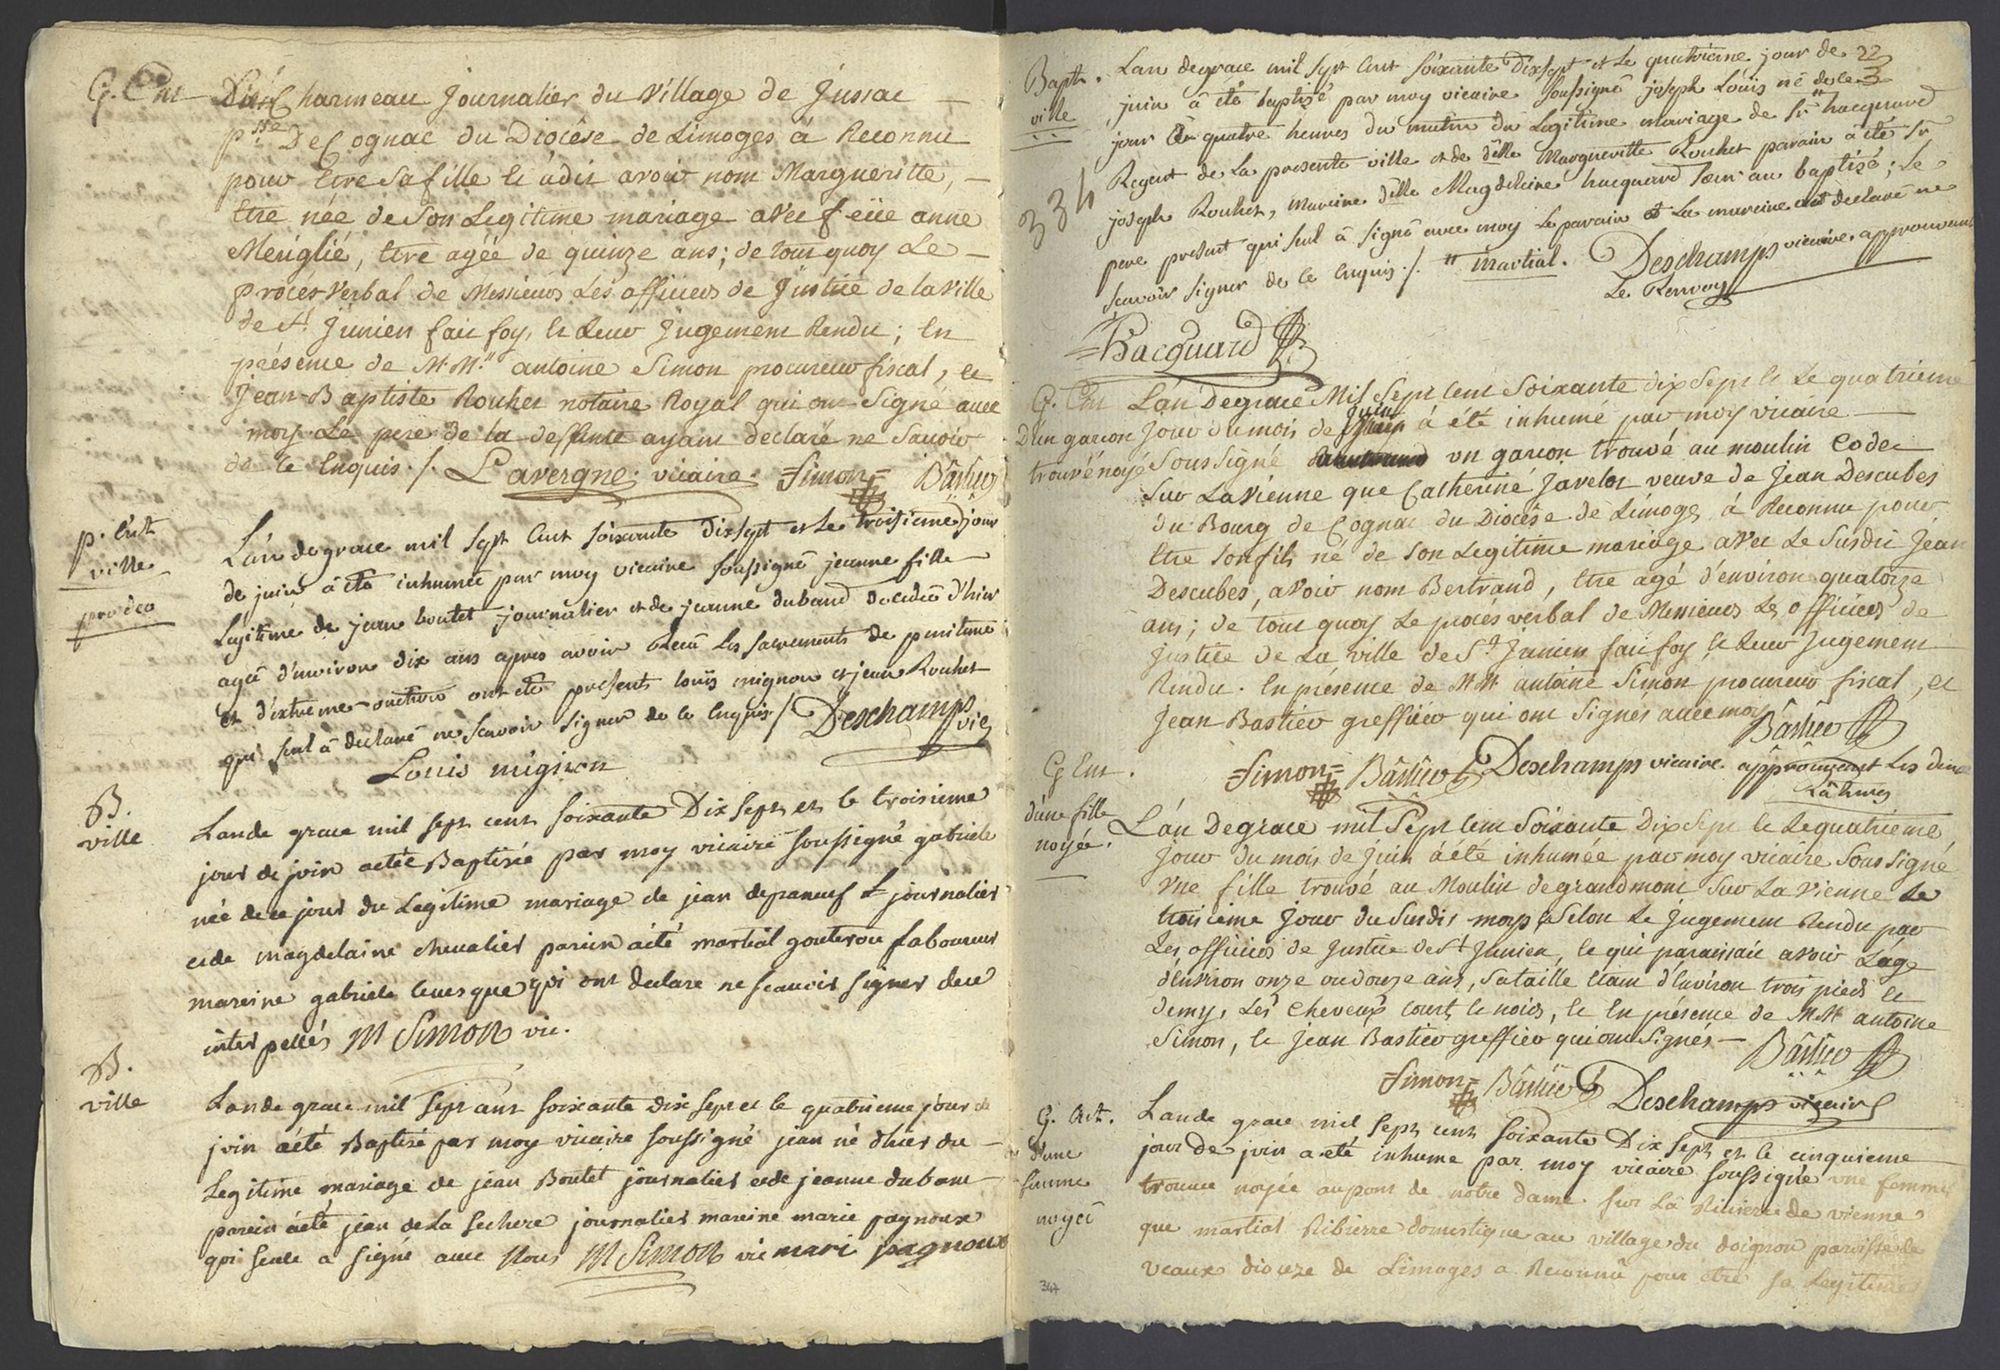 G. Ent
Charmeau Journalier du Village de Jussac
psse De Cognac du Diocése de Limoges á Reconnu
pour Etre Sa fille et á dit avoir nom Margueritte,
Etre née de Son Legitime mariage avec feüe anne
Meriglié, Etre agée de quinze ans; de tout quoy Le
procés verbal de Messieurs Les officiers de Justice de la Ville
de St. Junien fait foy, et Leur Jugement Rendu; En
présence de M.Mrs antoine Simon procureur fiscal, et
Jean-Baptiste Rouhet notaire Royal qui ont Signé avec
moy. Le pere de la deffunte ayant declaré ne Savoir
de ce Enquis./. Lavergne. vicaire. =Simon= Bastier
p. Ent.
ville
L'an de grace mil sept cent soixante dixsept et Le troisieme jour
de juin á eté inhumée par moy vicaire soussigné jeanne fille
Legitime de jean boutet journalier et de jeanne duband decedée d'hier
agée d'environ dix ans apres avoir Recu Les sacrements de penitence
et d'extreme-onction ont eté presents louis mignon et jean Rouhet
qui seul á declaré ne Scavoir signer de ce Enquis / Deschamps vic
Louis mignon
B.
ville
Lan de grace mil sept cent soixante Dix sept et le troisieme
jour de join aetée Baptisée par moy vicaire soussigné gabriele
née de ce jour du Legitime mariage de jean defraneuf journalier
et de magdelaine chevalier parein aété martial gouteron laboureur
mareine gabriele levesque qui ont declare ne scavoir signer de ce
inter pellés M Simon vic.
B.
ville
Lan de grace mil sept cent soixante dix sept et le quatrieme jour de
join aété Baptisé par moy vicaire soussigné jean né d'hier du
Legitime mariage de jean Boutet journalier et de jeanne dubane
parein aété jean de La sechere journalier mareine marie pagnoux
qui seule a signé avec Nous M Simon vic mari pagnoux
Bapth.
ville
Lan de grace mil sept cent soixante Dixsept et Le quatrieme jour de
22
3
juin á eté baptisé par moy vicaire soussigné joseph Loüis né de ce
jour a quatre heures du matin du Legitime mariage de Sr " hacquard
Regent de La presente ville et de dlle Margueritte Rouhet parain á eté Sr
334
joseph Rouhet, Mareine dlle Magdeleine hacquard soeur au baptisé; Le
pere present qui seul á signé avec moy Le parain et La mareine ont declaré ne
Scavoir signer de ce Enquis./. " Martial. Deschamps vicaire. approuvant
Le Renvoy
Hacquard
G. Ent
D'un garcon
trouvé noyé
L'an De grace Mil Sept cent Soixante dix Sept et Le quatrieme
Jour du mois de Juin á été inhumé par moy vicaire
Sous Signé un garcon trouvé au moulin Codet
Sur La Vienne que Catherine Javelot veuve de Jean Descubes
du Bourg de Cognac du Diocése de Limoges á Reconnu pour
Etre Son fils né de Son Legitime mariage avec Le Susdit Jean
Descubes, avoir nom Bertrand, Etre agé d'environ quatorze
ans; de tout quoy Le procés verbal de Messieurs Les officiers de
Justice de La ville de St. Junien fait foy et Leur Jugement
Rendu. En présence de M.M antoine Simon procureur fiscal, et
Jean Bastier greffier qui ont Signés avec moy Bastier
=Simon= Bastier Deschamps vicaire. approuvant Les deux
Ratures
G Ent.
d'une fille
noyée.
L'an De grace mil Sept cent Soixante Dix Sept et Le quatrieme
Jour du mois de Juin á été inhumée par moy vicaire Sous Signé
Une fille trouvé au Moulin de grandmont Sur La Vienne Le
troisieme Jour du Susdit moys, Selon Le Jugement Rendu par
Les officiers de Justice de St Junien, et qui paraissait avoir L'age
d'environ onze ou douze ans, Sa taille Etant d'Environ trois pieds et
demy, Les cheveux courts et noirs, et En présence de M.M antoine
Simon, et Jean Bastier greffier qui ont Signés Bastier
=Simon= Bastier Deschamps vicaire
G. Ent.
d'une
femme
noyeé
Lan de grace mil sept cent soixante Dix sept et le cinquieme
jour de join a eté inhume par moy vicaire soussigné une femme
trouvée noyée au pont de notre dame sur La Riviere de vienne
que martial Ribierre domestique au village du doignon paroisse de
veaux dioceze de Limoges a Reconnû pour etre sa Legitime
347